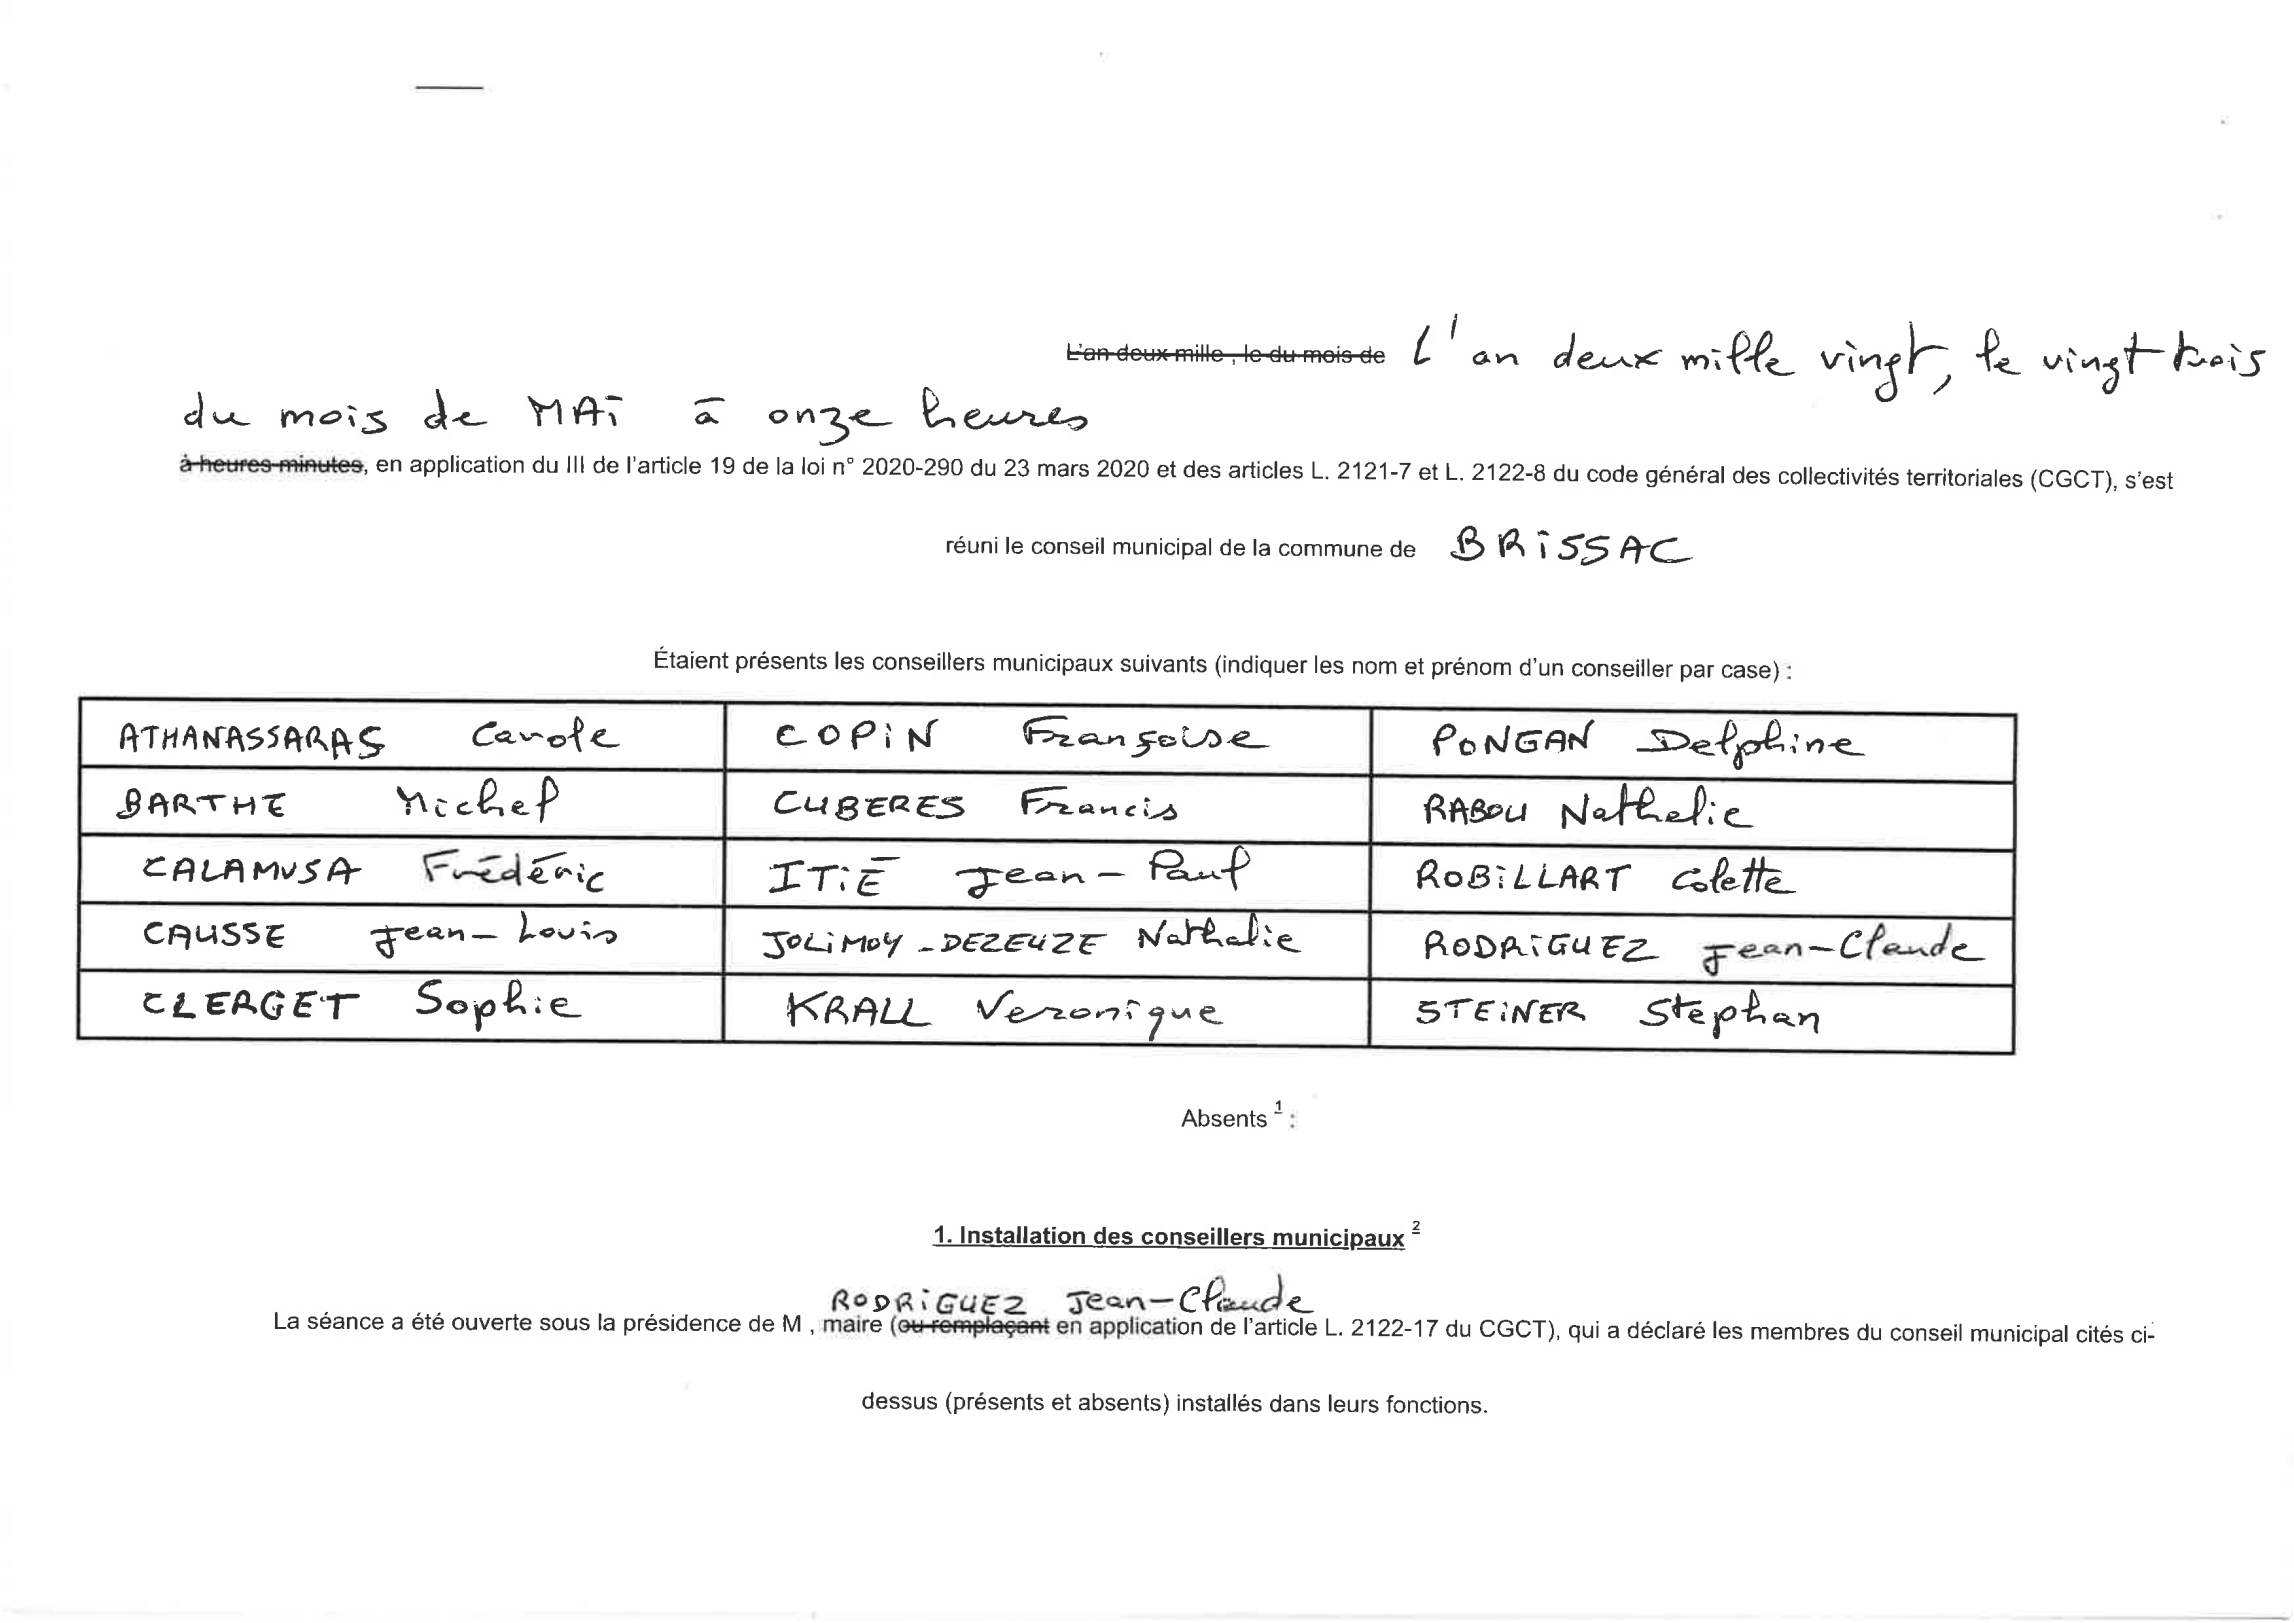 L'an deux mille , le du mois de L'an deux mille vingt, le vingt trois
du mois de MAI à onze heures
à heures minutes, en application du III de l'article 19 de la loi n° 2020-290 du 23 mars 2020 et des articles L. 2121-7 et L. 2122-8 du code général des collectivités territoriales (CGCT), s'est
réuni le conseil municipal de la commune de BRISSAC
Étaient présents les conseillers municipaux suivants (indiquer les nom et prénom d'un conseiller par case) :
ATHANASSARAS Carole COPIN Françoise PONGAN Delphine
BARTHE Michel CUBERES Francis RABOU Nathalie
CALAMUSA Frédéric ITIÉ Jean-Paul ROBILLART Colette
CAUSSE Jean-Louis JOLIMOY-DEZEUZE Nathalie RODRIGUEZ Jean-Claude
CLERGET Sophie KRALL Veronique STEINER Stephan
Absents 1 :
1. Installation des conseillers municipaux 2
RODRIGUEZ Jean-Claude
La séance a été ouverte sous la présidence de M , maire (ou remplaçant en application de l'article L. 2122-17 du CGCT), qui a déclaré les membres du conseil municipal cités ci-
dessus (présents et absents) installés dans leurs fonctions.